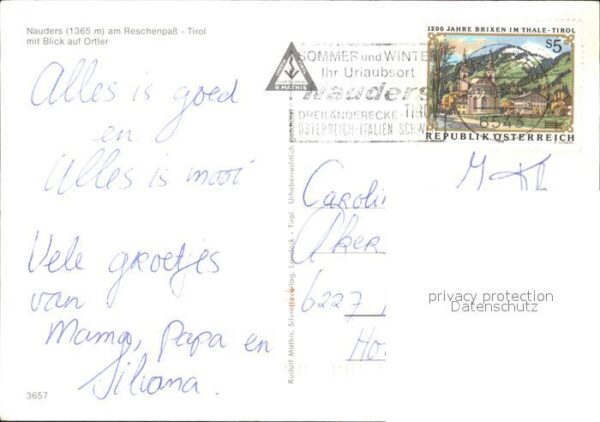 Nauders (1365 m) am Reschenpaß - Tirol
mit Blick auf Ortler
Alles is goed
en
Alles is mooi
Vele groetjes
van
Mama, Papa en
Siliana.
3657
Rudolf Mathis, Silvrettaverlag, Landeck - Tirol. Urheberrechtlich geschützt
R. MATHIS
SOMMER und WINTER
Ihr Urlaubsort
Nauders
DREILÄNDERECKE - TIROL
ÖSTERREICH-ITALIEN-SCHW
6543
1200 JAHRE BRIXEN IM THALE - TIROL
S5
REPUBLIK ÖSTERREICH
Carolin
Aker
6227
Ho
privacy protection
Datenschutz